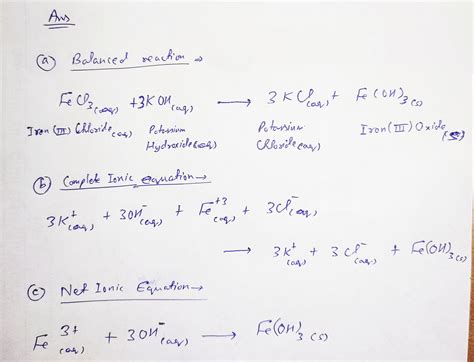 Ans
(a) Balanced reaction →
FeCl3(aq) + 3KOH(aq) → 3KCl(aq) + Fe(OH)3(s)
Iron (III) Chloride(aq) Potassium Potassium Iron (III) Oxide(s)
Hydroxide(aq) Chloride(aq)
(b) Complete Ionic equation →
3K+(aq) + 3OH-(aq) + Fe+3(aq) + 3Cl-(aq)
→ 3K+(aq) + 3Cl-(aq) + Fe(OH)3(s)
(c) Net Ionic Equation →
Fe3+(aq) + 3OH-(aq) → Fe(OH)3(s)